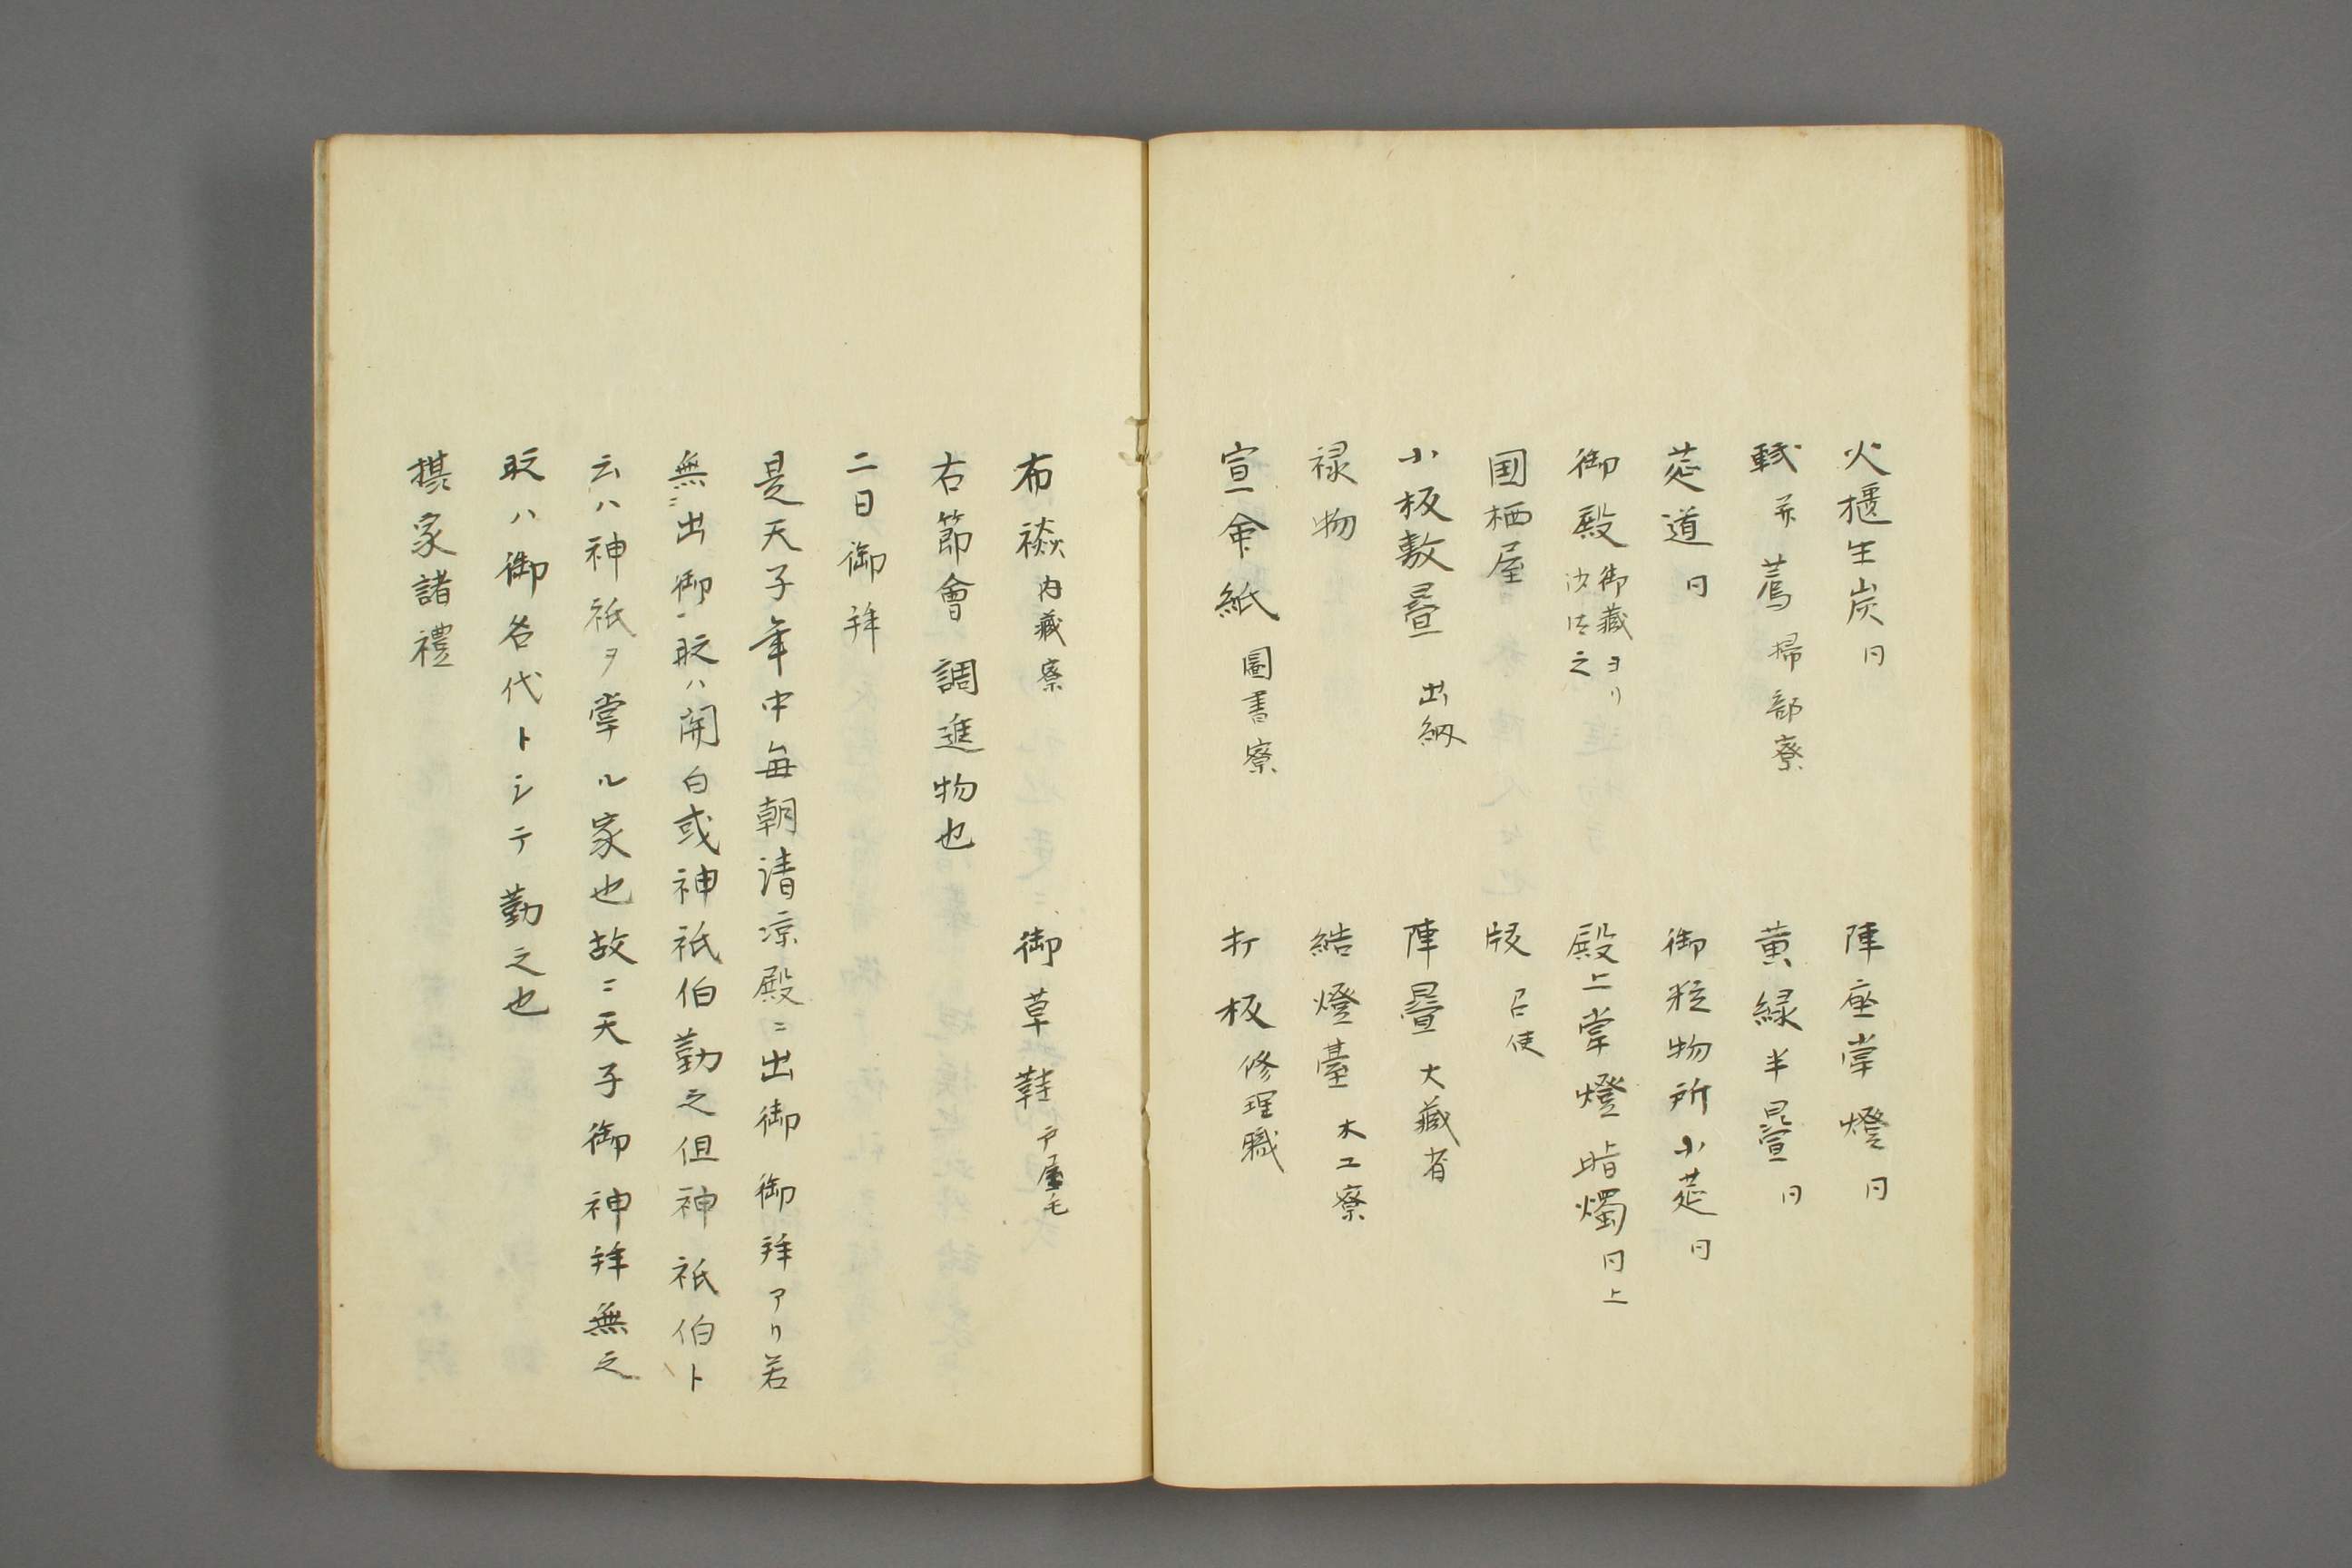 火櫃生炭 同
陣座掌燈 同
軾 并 薦 掃部寮
黄縁半疊 同
莚道 同
御粧物所小莚 同
御殿 御藏ヨリ沙汰之
殿上掌燈 脂燭 同上
国栖屋
版 召使
小板敷疊 出納
陣疊 大藏省
禄物
結燈臺 木工寮
宣命紙 圖書寮
打板 修理職
布襖 内藏寮
御草鞋 戸屋毛
右節會調進物也
二日御拜
是天子年中毎朝清凉殿ニ出御 御拜アリ若
無ニ出御ー䟽ハ関白或神祇伯勤之但神祇伯ト
云ハ神祇ヲ掌ル家也故ニ天子御神拜無之
䟽ハ御名代トシテ勤之也
摂家諸禮